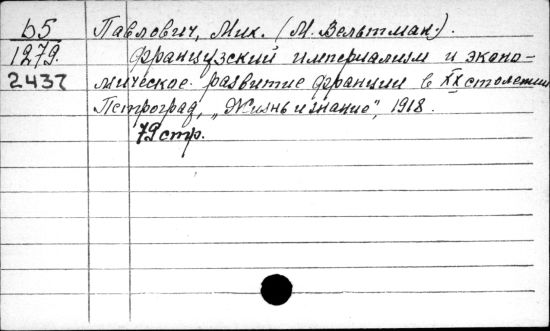 b5 Павлович, Мих. (М. Вельтман.).
1279. Французский империализм и эконо-
2437 мическое развитие Франции в XX столетии
Петроград, „Жизнь и знание", 1918.
79 стр.